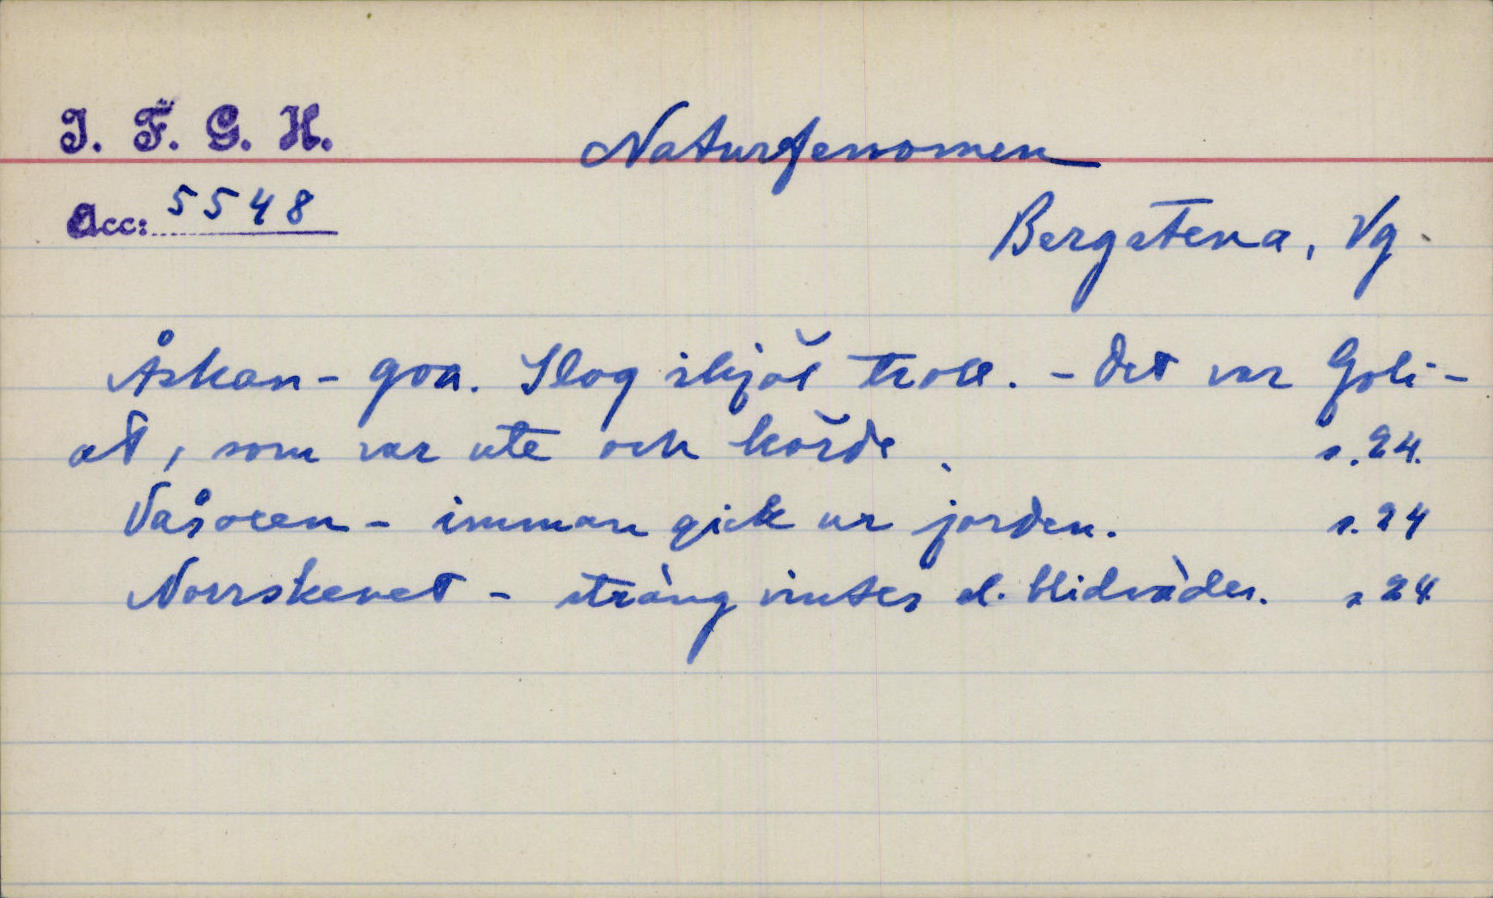 I. F. G. H.
Naturfenomen
Acc: 5548
Bergstena, Vg.
Åskan - goa. Slog ihjäl troll. - Det var Goli-
at, som var ute och körde. s. 24.
Våroxen - imman gick ur jorden. s. 24
Norrskenet - sträng vinter el. blidväder. s 24.